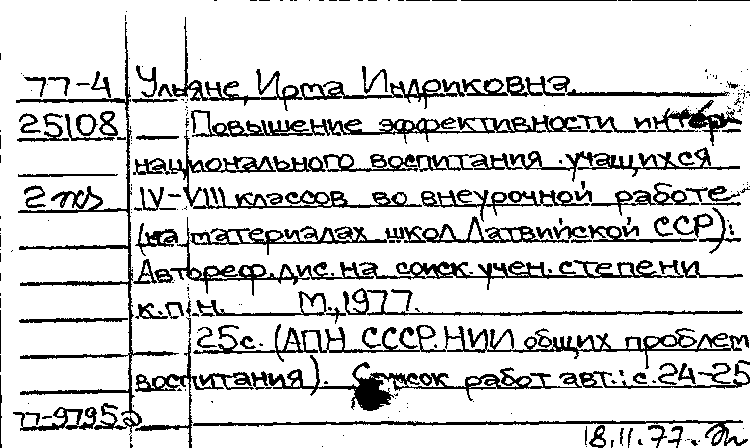 77-4 Ульяне, Ирма Индриковна.
25108 Повышение эффективности интер-
национального воспитания учащихся
2 экз IV-VIII классов во внеурочной работе
(на материалах школ Латвийской ССР):
Автореф. дис. на соиск. учен. степени
к.п.н. М., 1977.
25с. (АПН СССР. НИИ общих проблем
воспитания). Список работ авт.: с.24-25
77-9795а
18.11.77.